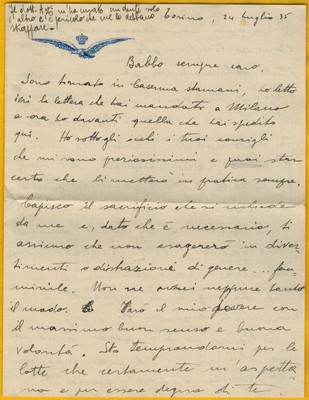 Il dott. Asti m'ha curato un dente solo
l'altro c'è pericolo che me lo debbano
strappare.
Torino, 24 Luglio 35
Babbo sempre caro,
Sono tornato in Caserma stamani, ho letto
ieri la lettera che hai mandato a Milano
e ora ho davanti quella che hai spedito
qui. Ho sott'occhi i tuoi consigli
che mi sono preziosissimi e puoi star
certo che li metterò in pratica sempre.
Capisco il sacrificio che si richiede
da me e, dato che è necessario, ti
assicuro che non esagererò in diver-
timenti o distrazioni di genere... fem-
minile. Non ne avrei neppure tanto
il modo. Farò il mio dovere con
il massimo buon senso e buona
volontà. Sto temprandomi per le
lotte che certamente m'aspetta
no e per essere degno di te.